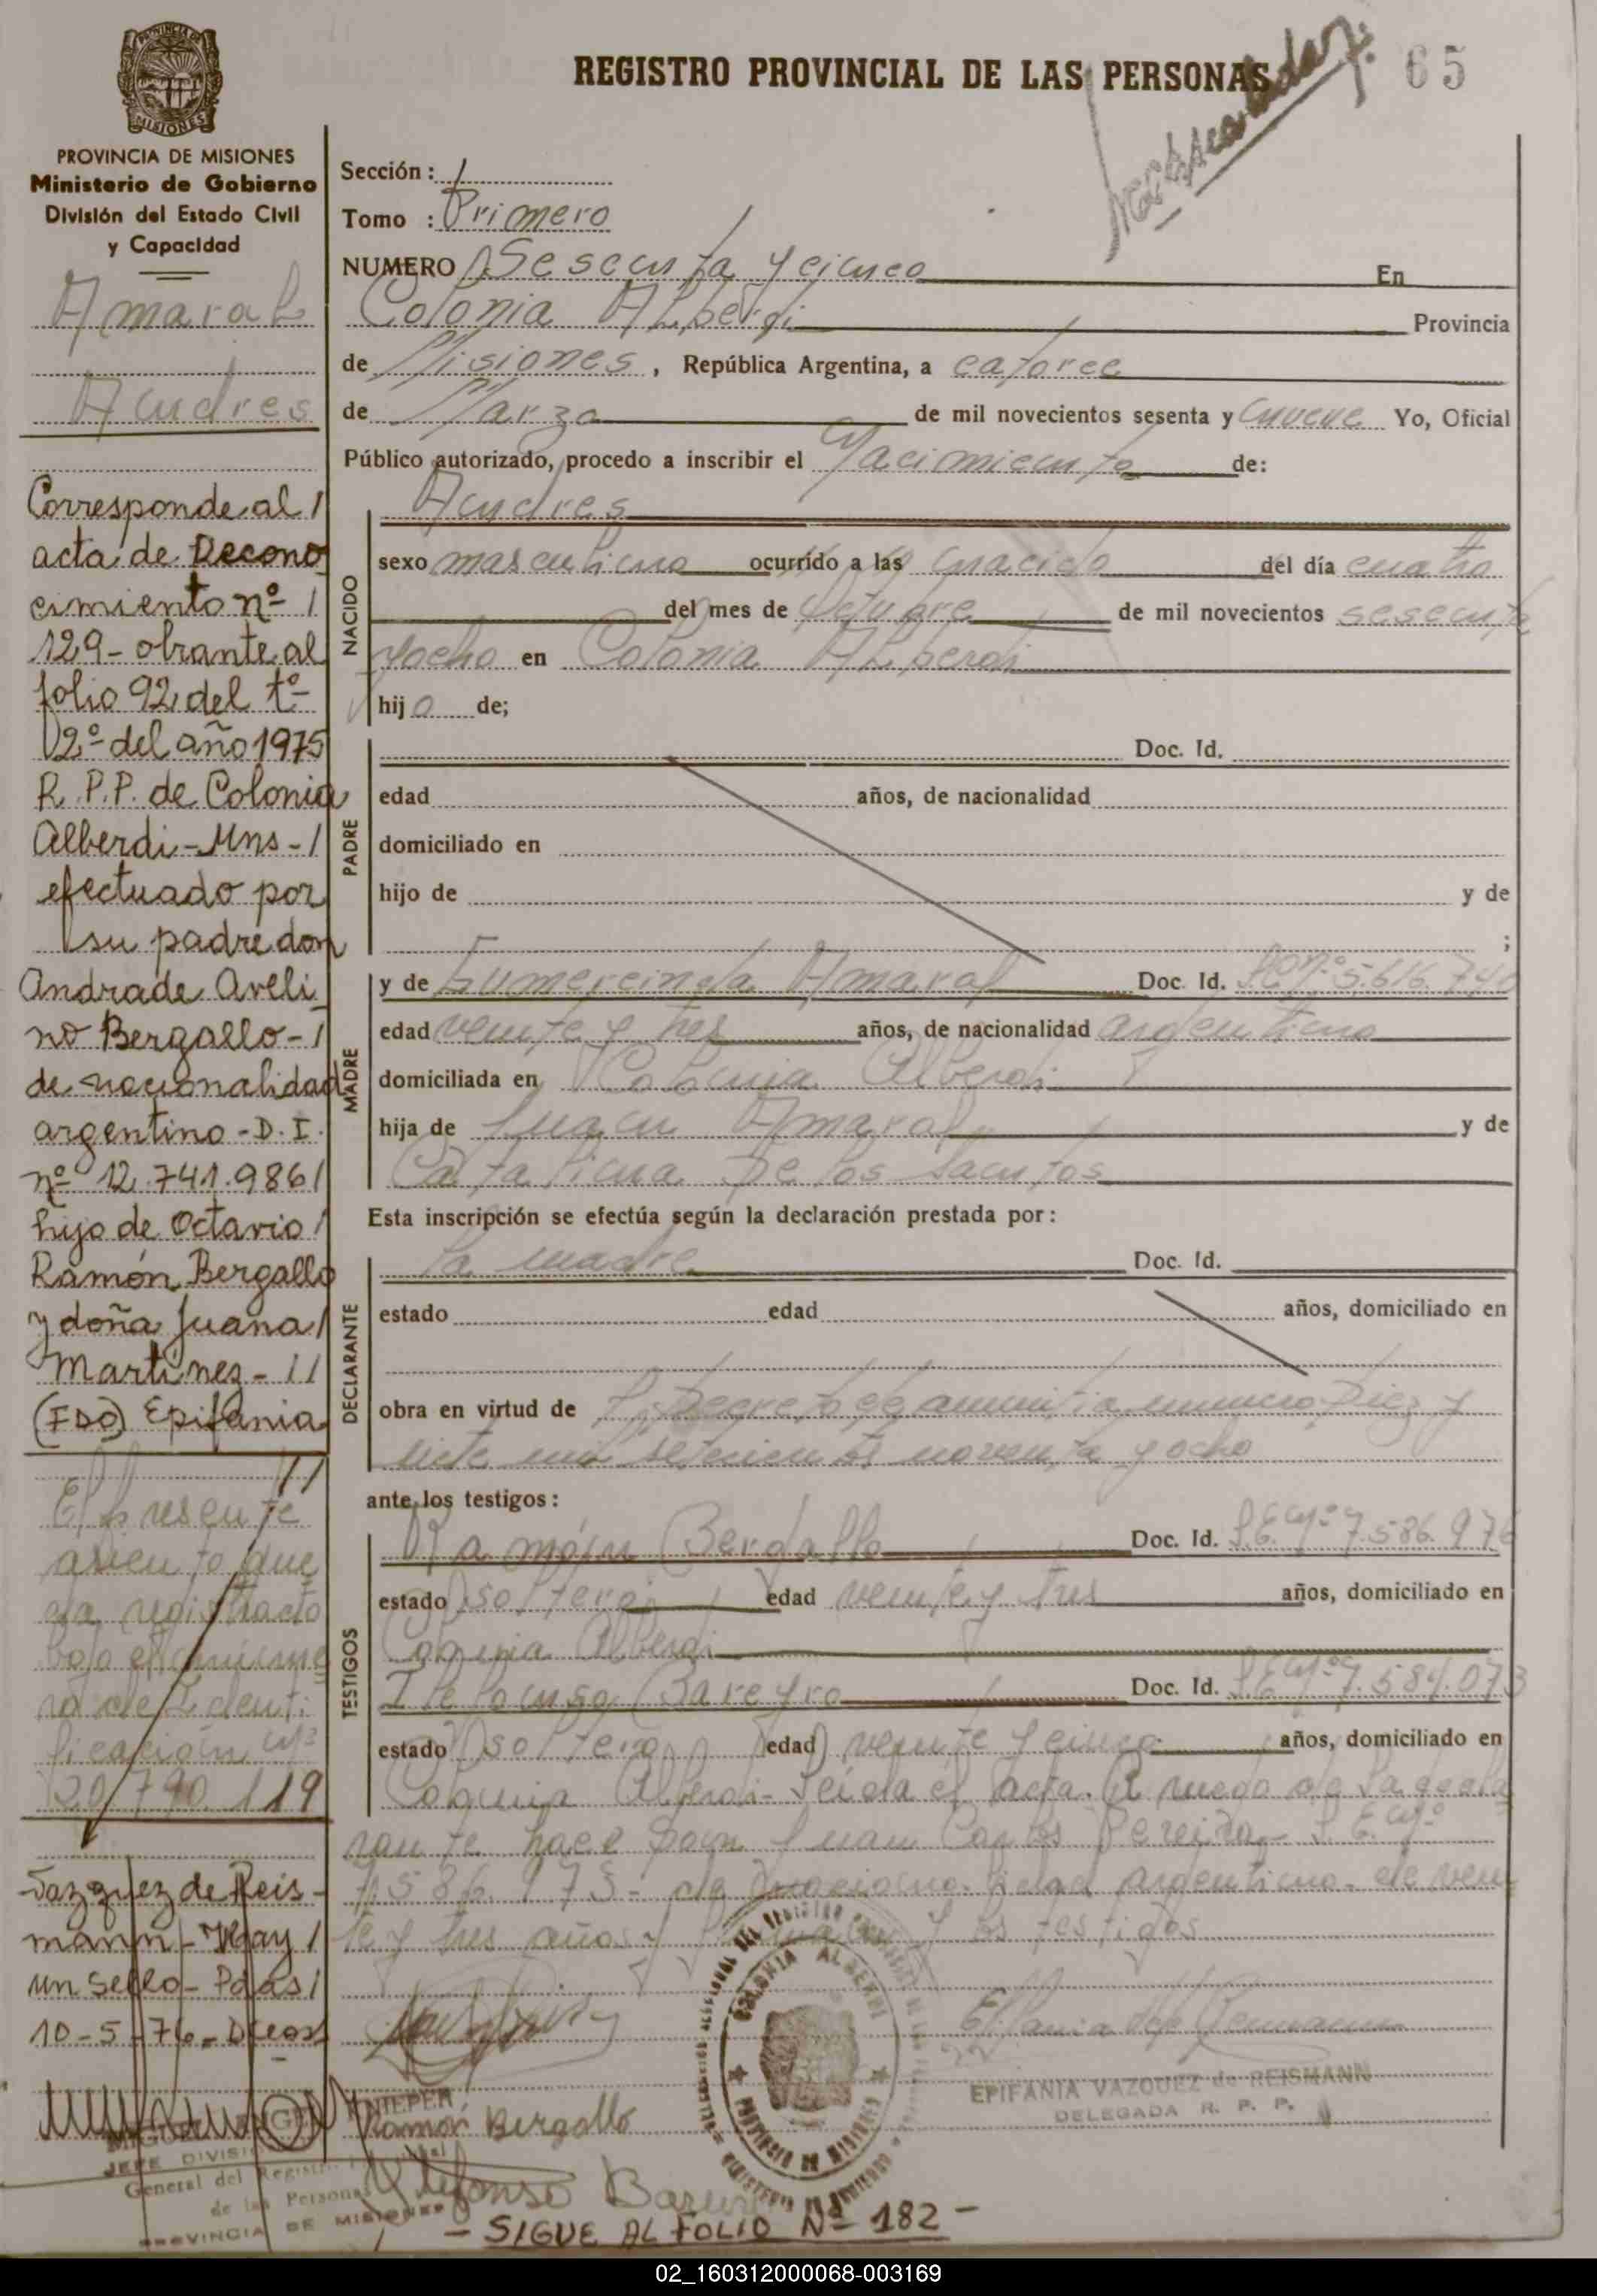 REGISTRO PROVINCIAL DE LAS PERSONAS
65
PROVINCIA DE MISIONES
PROVINCIA DE MISIONES
Ministerio de Gobierno
División del Estado Civil
y Capacidad
Amaral
Andres
Corresponde al /
acta de Recono
cimiento nº /
129 - obrante al
folio 92 del tº
2º del año 1975
R.P.P. de Colonia
Alberdi - Mns - /
efectuado por
su padre don
Andrade Aveli
no Bergallo - /
de nacionalidad
argentino - D.I.
nº 12.741.986 /
hijo de Octavio /
Ramón Bergallo
y doña Juana /
Martinez - //
(FDO) Epifania
//
El presente
asiento que
da registrado
bajo el número
ro de Identi
ficación Nº
20.790.119
Vazquez de Reis-
mann - Hay /
un sello - Pdas /
10-5-76 -
JEFE DIVISI
General del Registro
de las Personas
PROVINCIA DE MISIONES
Sección : 1
Tomo : Primero
NUMERO Sesenta y cinco En
Colonia Alberdi Provincia
de Misiones , República Argentina, a catorce
de Marzo de mil novecientos sesenta y nueve Yo, Oficial
Público autorizado, procedo a inscribir el Nacimiento de:
NACIDO
Andres
sexo masculino ocurrido a las nacido del día cuatro
del mes de Octubre de mil novecientos sesenta
y ocho en Colonia Alberdi
hij o de;
PADRE
Doc. Id.
edad años, de nacionalidad
domiciliado en
hijo de y de
;
MADRE
y de Lumercinda Amaral Doc. Id. nº 5.616.740
edad veinte y tres años, de nacionalidad argentina
domiciliada en Colonia Alberdi
hija de Juan Amaral y de
Catalina De los Santos
Esta inscripción se efectúa según la declaración prestada por:
DECLARANTE
la madre Doc. Id.
estado edad años, domiciliado en
obra en virtud de Decreto de amnistia numero Diez y
siete mil setecientos noventa y ocho
ante los testigos:
TESTIGOS
Ramón Bergallo Doc. Id. L.E. Nº 7.586.976
estado soltero edad veinte y tres años, domiciliado en
Colonia Alberdi
Ildefonso Bareyro Doc. Id. L.E. Nº 7.584.073
estado soltero edad veinte y cinco años, domiciliado en
Colonia Alberdi - Leida el acta. A ruego de la decla
rante hace Don Juan Carlos Pereira - L.E. Nº
7.586.973 - de nacionalidad argentina - de vein
te y tres años y los testigos
COLONIA ALBERDI
PROVINCIA DE MISIONES
EPIFANIA VAZQUEZ de REISMANN
DELEGADA R. P. P.
Ramón Bergallo
Ildefonso
- SIGUE AL FOLIO Nº 182 -
02_160312000068-003169